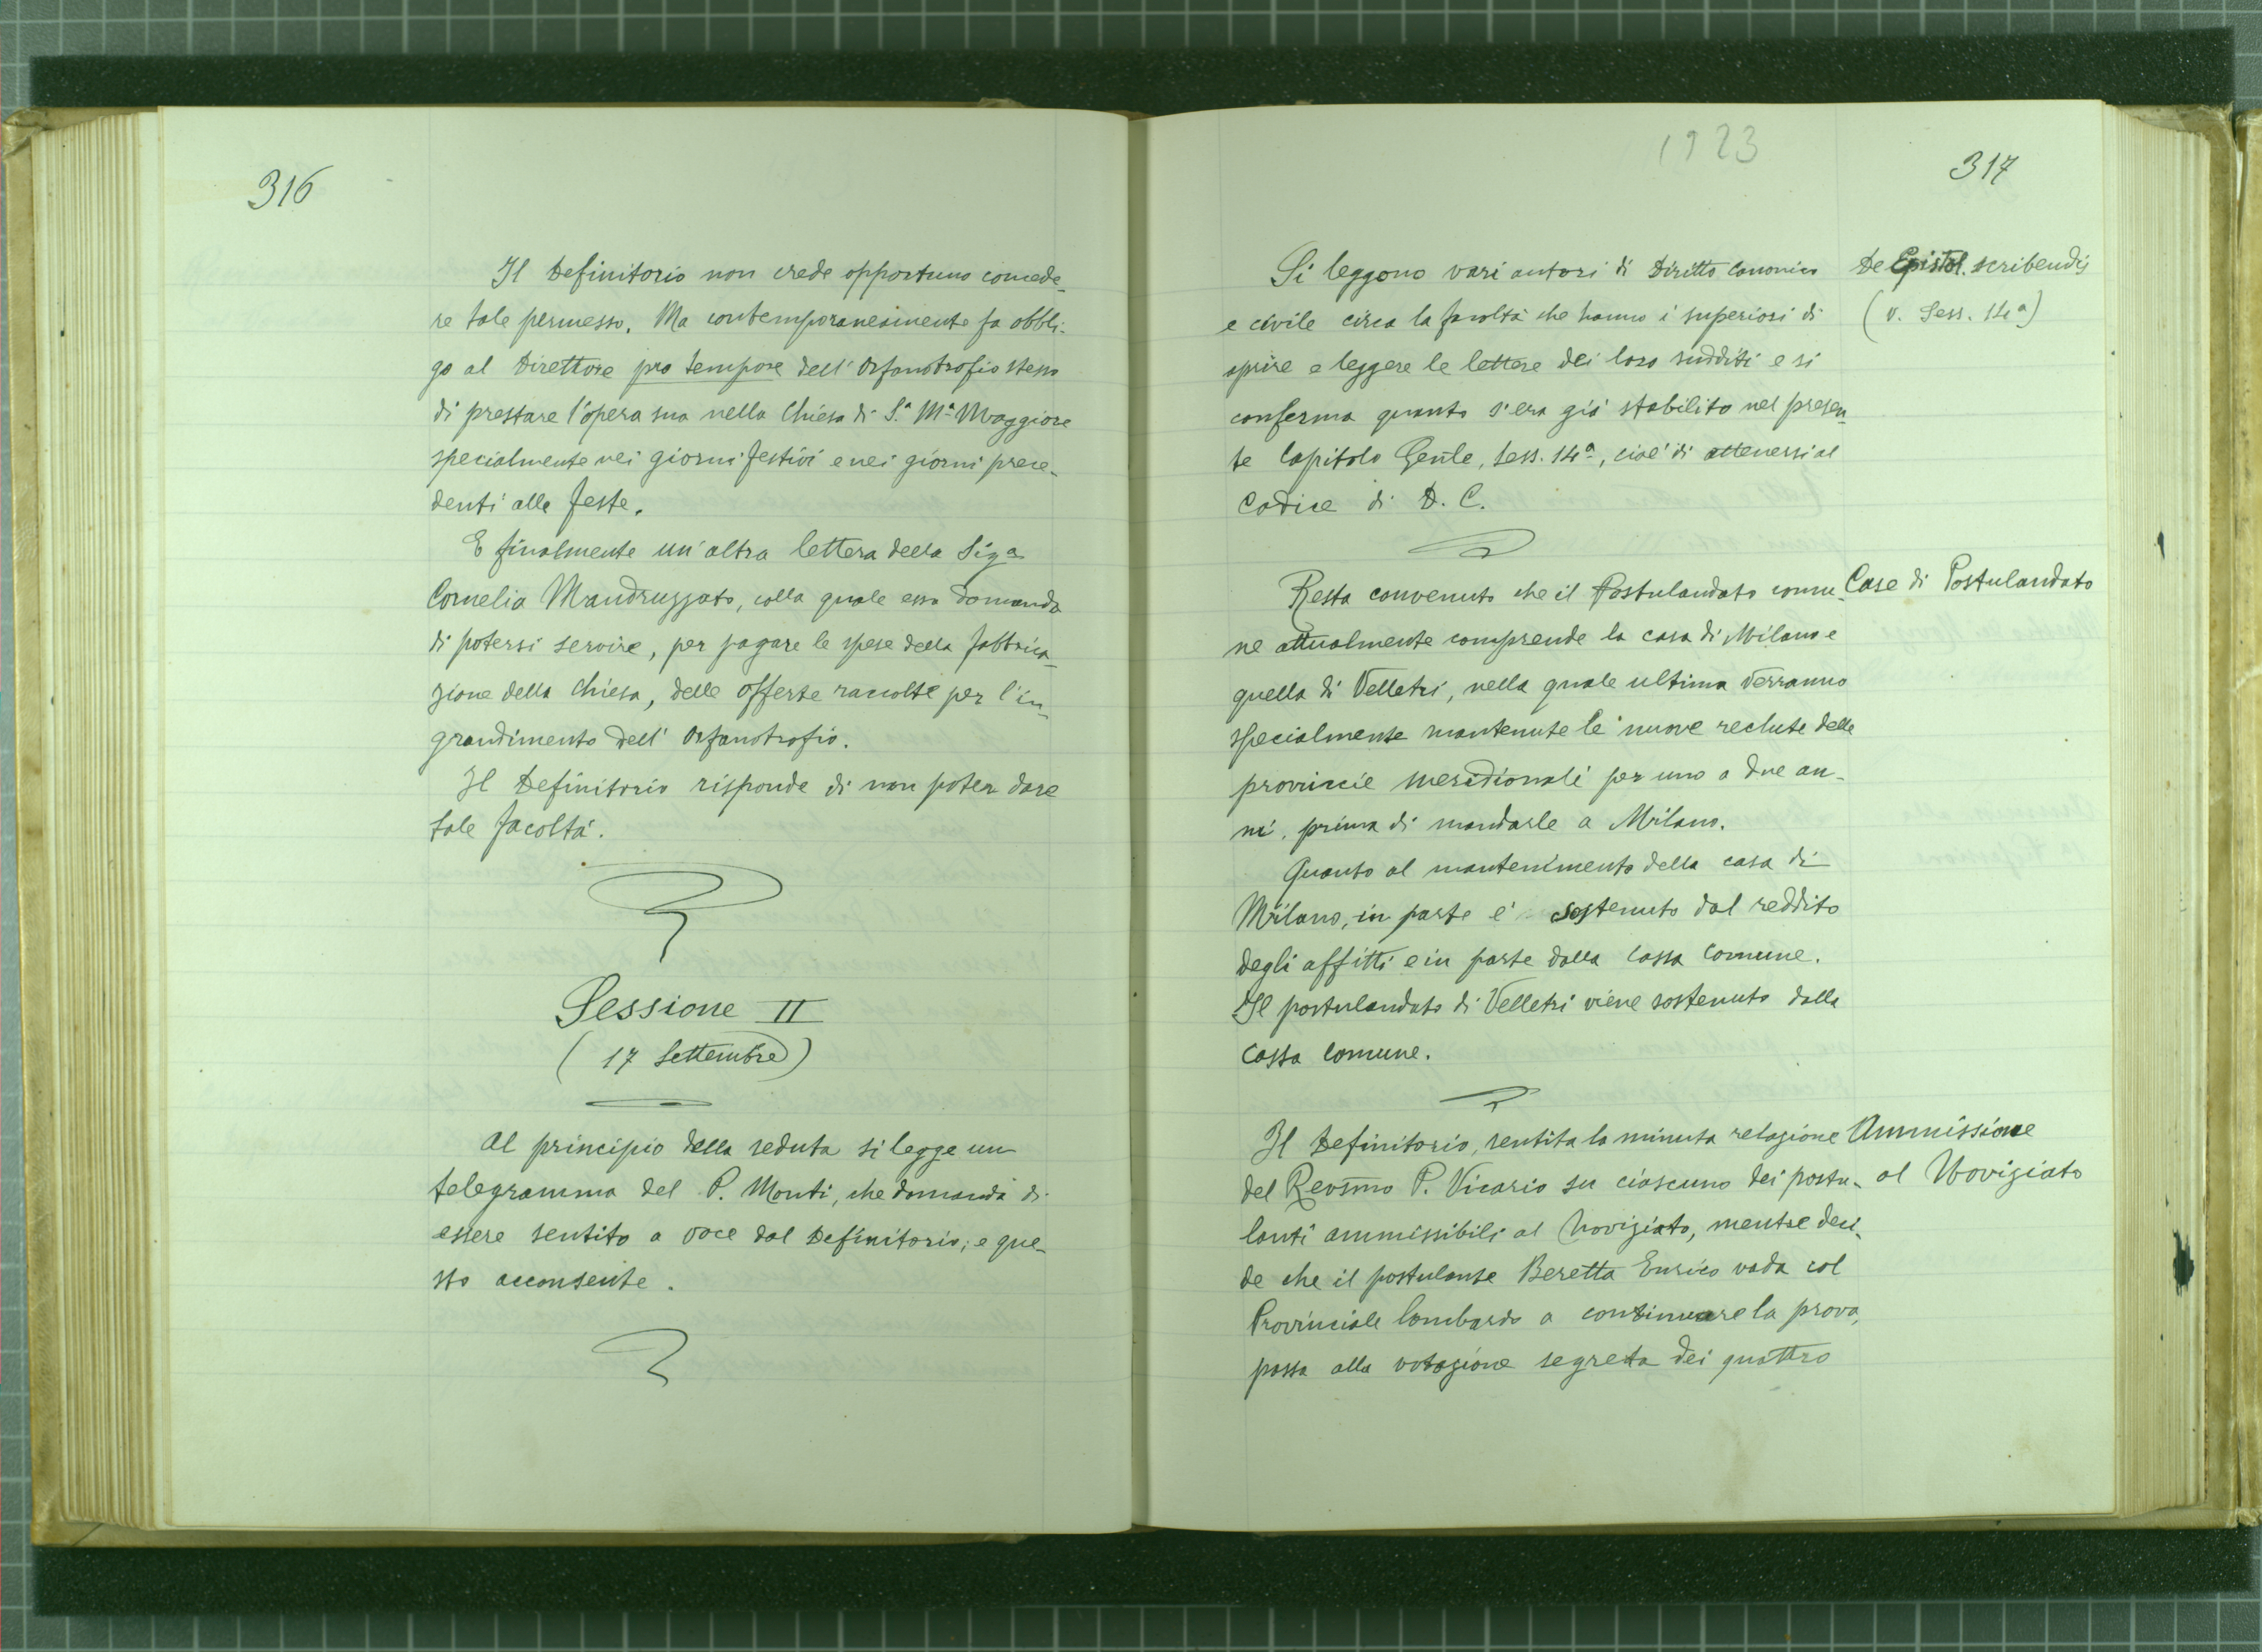 316
Il Definitorio non crede opportuno concede-
re tale permesso. Ma contemporaneamente fa obbli-
go al Direttore pro tempore dell' Orfanotrofio stesso
di prestare l'opera sua nella Chiesa di S.a M.a Maggiore
specialmente nei giorni festivi e nei giorni prece-
denti alle feste.
E finalmente un'altra lettera della Sig.a
Cornelia Mandruzzato, colla quale essa domanda
di potersi servire, per pagare le spese della fabbrica-
zione della Chiesa, delle offerte raccolte per l'in-
grandimento dell' Orfanotrofio.
Il Definitorio risponde di non poter dare
tale facoltà.
Sessione II
(17 Settembre)
Al principio della seduta si legge un
telegramma del P. Monti, che domanda di
essere sentito a voce dal Definitorio; e que-
sto acconsente.
1923
317
Si leggono vari autori di Diritto Canonico
e civile circa la facoltà che hanno i superiori di
aprire e leggere le lettere dei loro sudditi e si
conferma quanto s'era già stabilito nel presen-
te Capitolo Gen̄le, Sess. 14a, cioè di attenersi al
Codice di D. C.
De Epistol. scribendis
(V. Sess. 14a)
Resta convenuto che il Postulandato comu-
ne attualmente comprende la casa di Milano e
quella di Velletri, nella quale ultima verranno
specialmente mantenute le nuove reclute delle
provincie meridionali per uno o due an-
ni, prima di mandarle a Milano.
Quanto al mantenimento della casa di
Milano, in parte è sostenuto dal reddito
degli affitti e in parte dalla cassa comune.
Il postulandato di Velletri viene sostenuto dalla
cassa comune.
Case di Postulandato
Il Definitorio, sentita la minuta relazione
del Revs̄mo P. Vicario su ciascuno dei postu-
lanti ammissibili al Noviziato, mentre deci-
de che il postulante Beretta Enrico vada col
Provinciale lombardo a continuare la prova,
passa alla votazione segreta dei quattro
Ammissione
al Noviziato